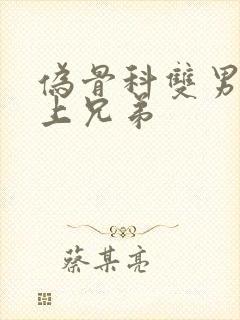 偽骨科雙男
上兄弟
蔡某亮